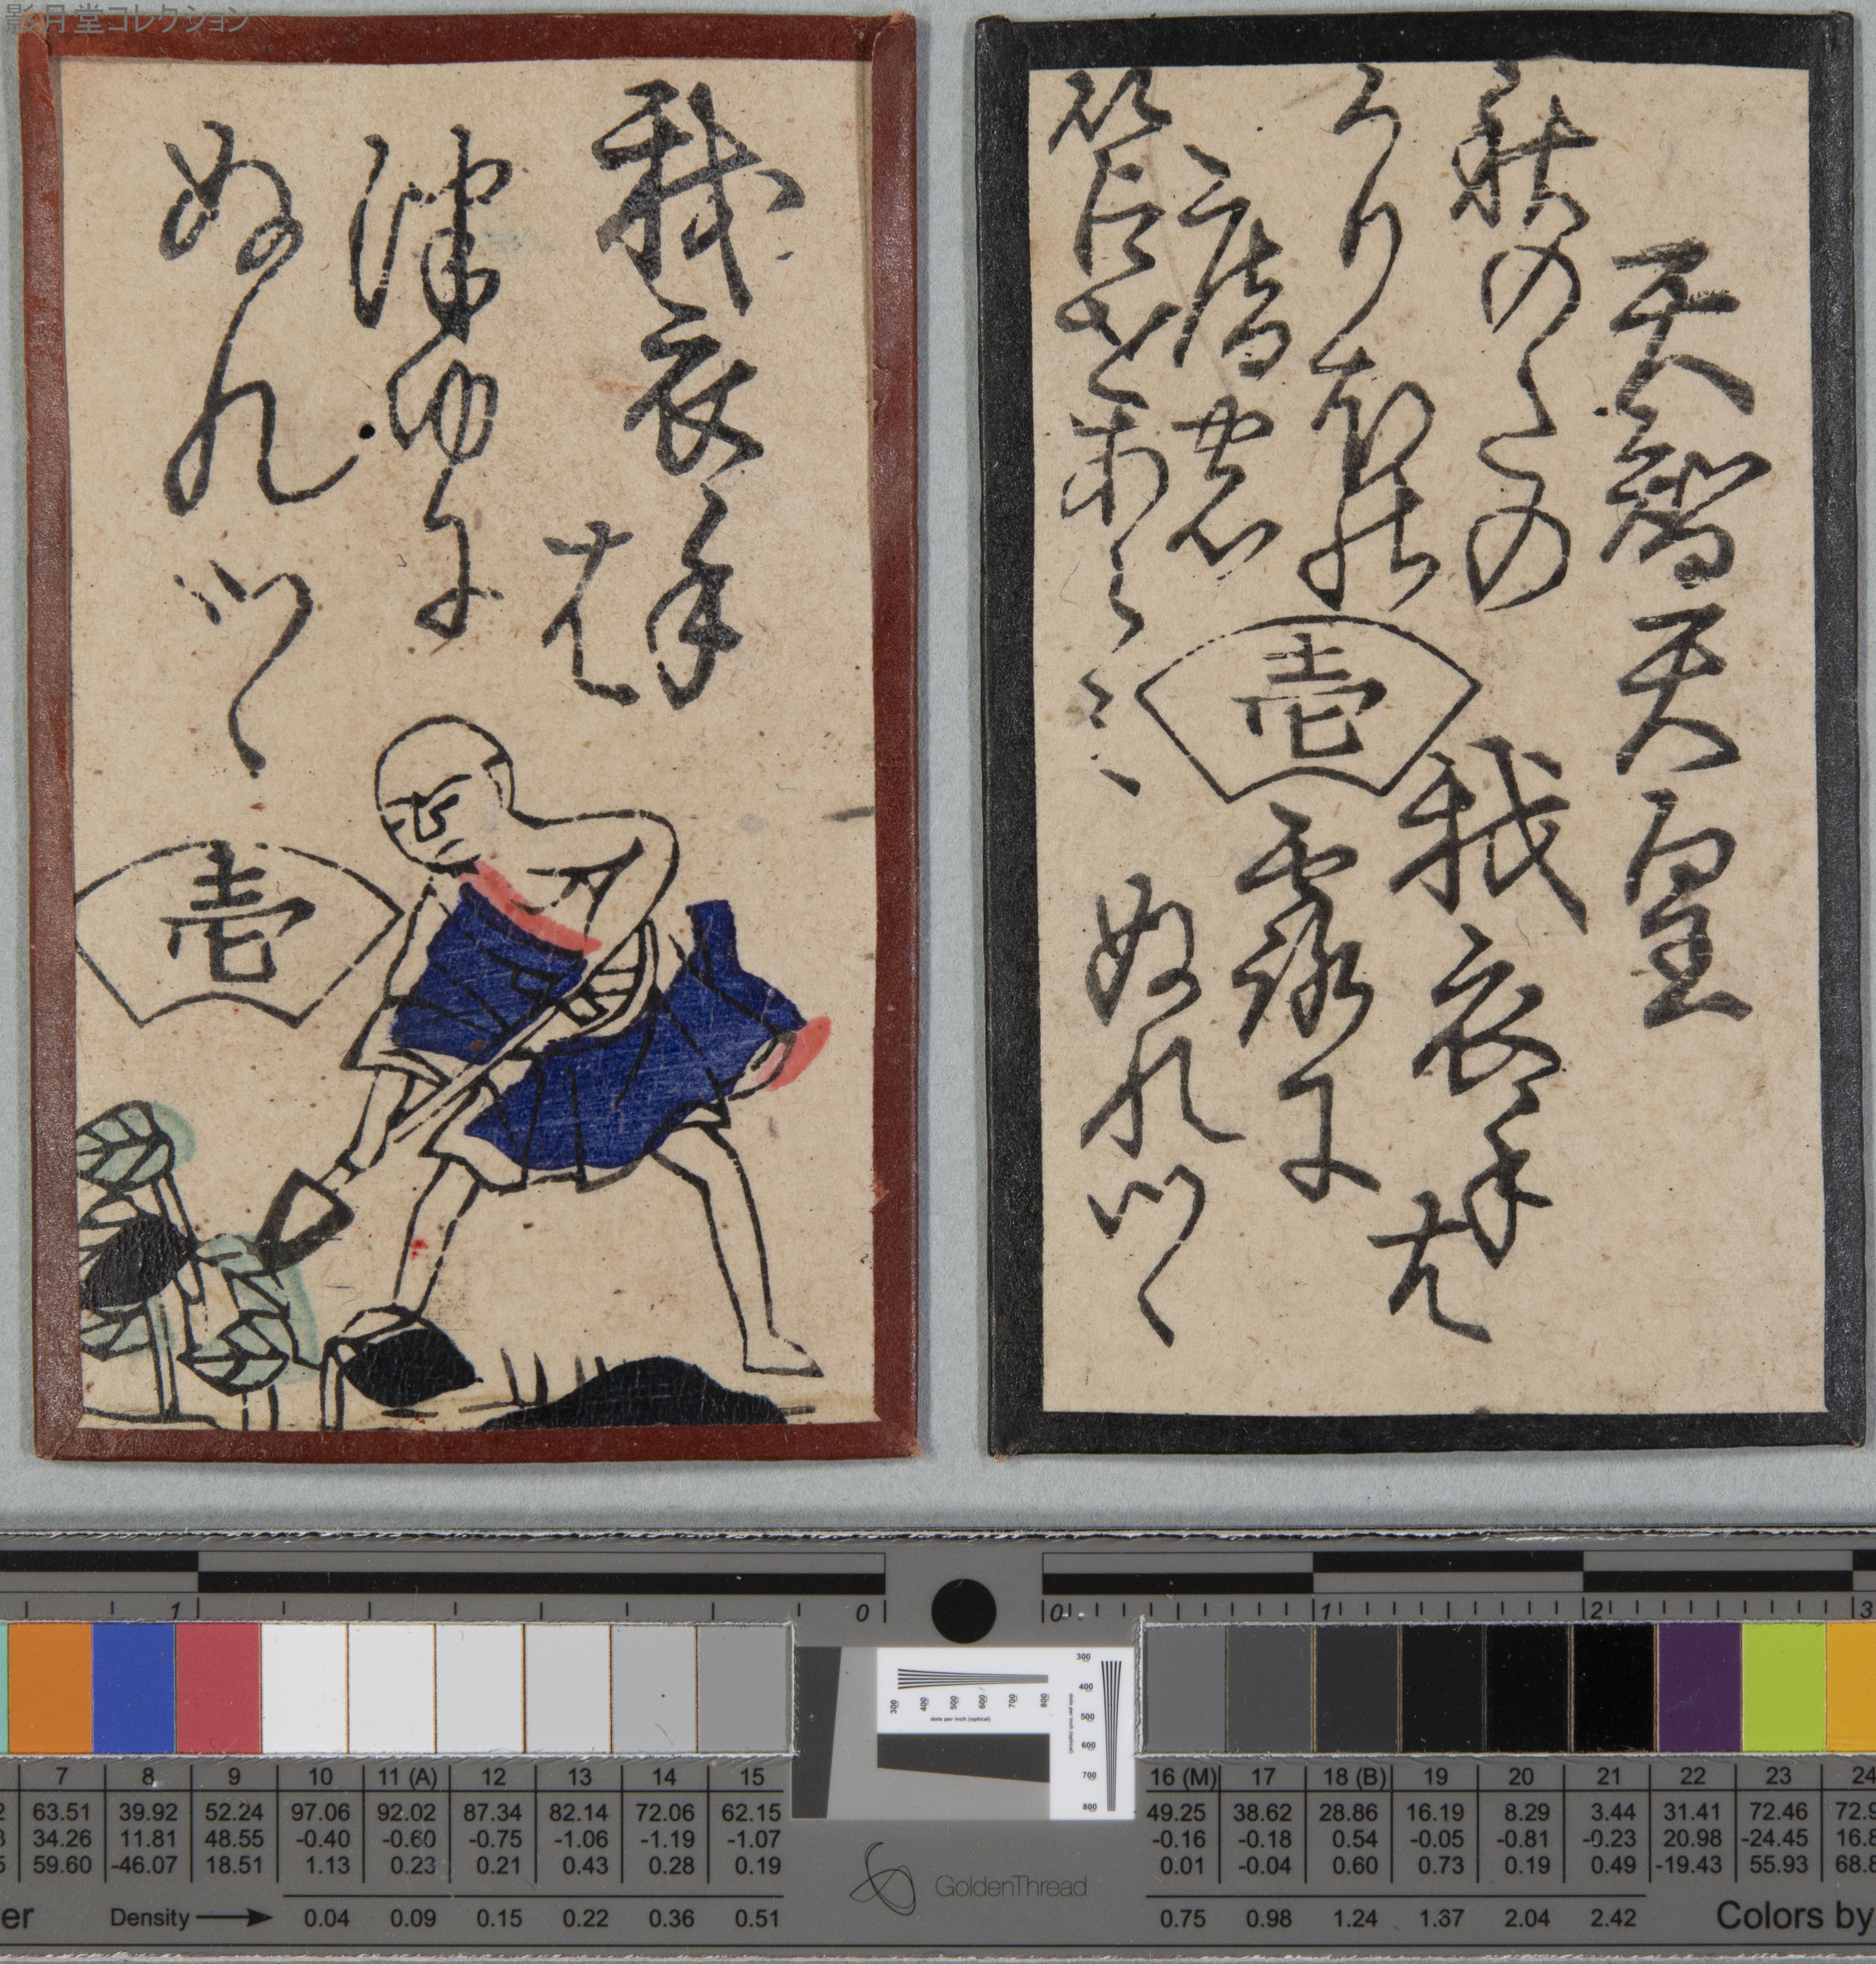 影月堂コレクション
我衣手
は
津ゆに
ぬれつゝ
壱
天智天皇
秋のたの
かりほの
庵の
壱
我衣手
は
露に
ぬれつゝ
1 0
0 1 2 3
300 400 500 600 700 800
dots per inch (optical)
300
400
500
600
700
800
dots per inch (optical)
7 8 9 10 11 (A) 12 13 14 15
63.51 39.92 52.24 97.06 92.02 87.34 82.14 72.06 62.15
34.26 11.81 48.55 -0.40 -0.60 -0.75 -1.06 -1.19 -1.07
59.60 -46.07 18.51 1.13 0.23 0.21 0.43 0.28 0.19
Density 0.04 0.09 0.15 0.22 0.36 0.51
GoldenThread
16 (M) 17 18 (B) 19 20 21 22 23 24
49.25 38.62 28.86 16.19 8.29 3.44 31.41 72.46
-0.16 -0.18 0.54 -0.05 -0.81 -0.23 20.98 -24.45
0.01 -0.04 0.60 0.73 0.19 0.49 -19.43 55.93
0.75 0.98 1.24 1.67 2.04 2.42
Colors by